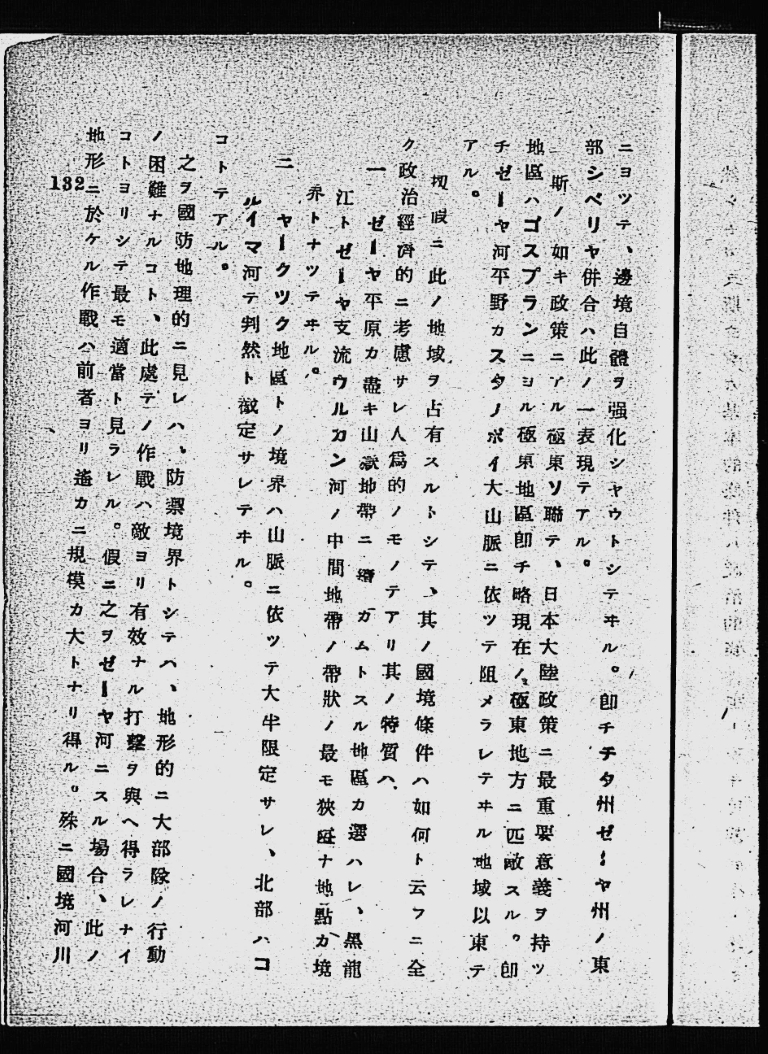 ニヨツテ、邊境自體ヲ强化シヤウトシテヰル。卽チチタ州ゼーヤ州ノ東
部シベリヤ併合ハ此ノ一表現テアル。
斯ノ如キ政策ニアル極東ソ聯テ、日本大陸政策ニ最重要意義ヲ持ツ
地區ハゴスプランニヨル極東地區卽チ略現在ノ極東地方ニ匹敵スル。卽
チゼーヤ河平野カスタノボイ大山脈ニ依ツテ阻メラレテヰル地域以東テ
アル。
切 假ニ此ノ地域ヲ占有スルトシテ、其ノ國境條件ハ如何ト云フニ全
ク政治經濟的ニ考慮サレ人爲的ノモノテアリ其ノ特質ハ、
一 ゼーヤ平原カ盡キ山嶽地帶ニ カムトスル地區カ選ハレ、黑龍
江トゼーヤ支流ウルカン河ノ中間地帶ノ帶狀ノ最モ狹隘ナ地點カ境
界トナツテヰル。
二 ヤークツク地區トノ境界ハ山脈ニ依ツテ大半限定サレ、北部ハコ
ルイマ河テ判然ト劃定サレテヰル。
コトテアル。
之ヲ國防地理的ニ見レハ、防禦境界トシテハ、地形的ニ大部隊ノ行動
ノ困難ナルコト、此處テノ作戰ハ敵ヨリ有效ナル打擊ヲ與ヘ得ラレナイ
コトヨリシテ最モ適當ト見ラレル。假ニ之ヲゼーヤ河ニスル場合、此ノ
地形ニ於ケル作戰ハ前者ヨリ遙カニ規模カ大トナリ得ル。殊ニ國境河川
132